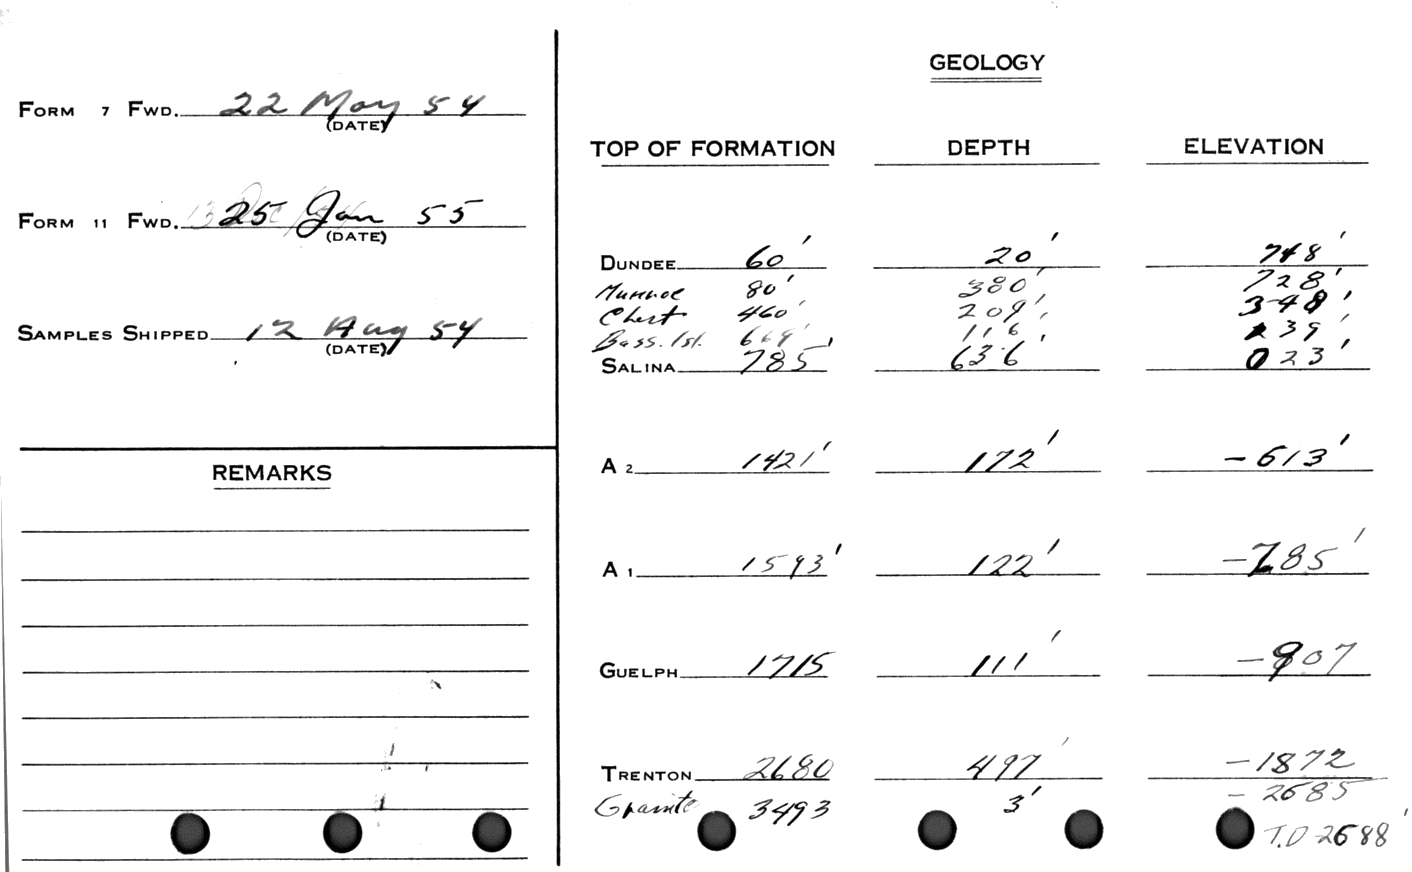 FORM 7 FWD. 22 May 54
(DATE)
FORM 11 FWD. 25 Jan 55
(DATE)
SAMPLES SHIPPED 12 Aug 54
(DATE)
REMARKS
GEOLOGY
TOP OF FORMATION DEPTH ELEVATION
DUNDEE 60' 20' 748'
Munroe 80' 380' 728'
Chert 460' 209' 348'
Bass. Isl. 669' 116' 139'
SALINA 785' 636' 023'
A 2 1421' 172' -613'
A 1 1593' 122' -785'
GUELPH 1715 111' -907
TRENTON 2680 497' -1872
Granite 3493 3' -2685
T.D 2688'